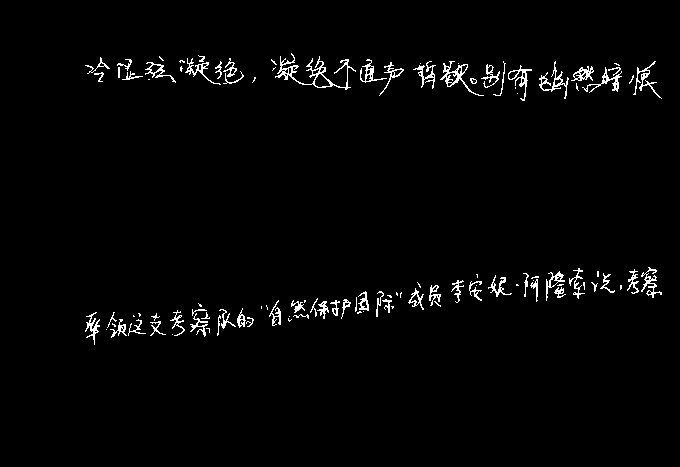 冷涩弦凝绝，凝绝不通声暂歇。别有幽愁暗恨
率领这支考察队的“自然保护国际”成员李安妮·阿隆索说，考察